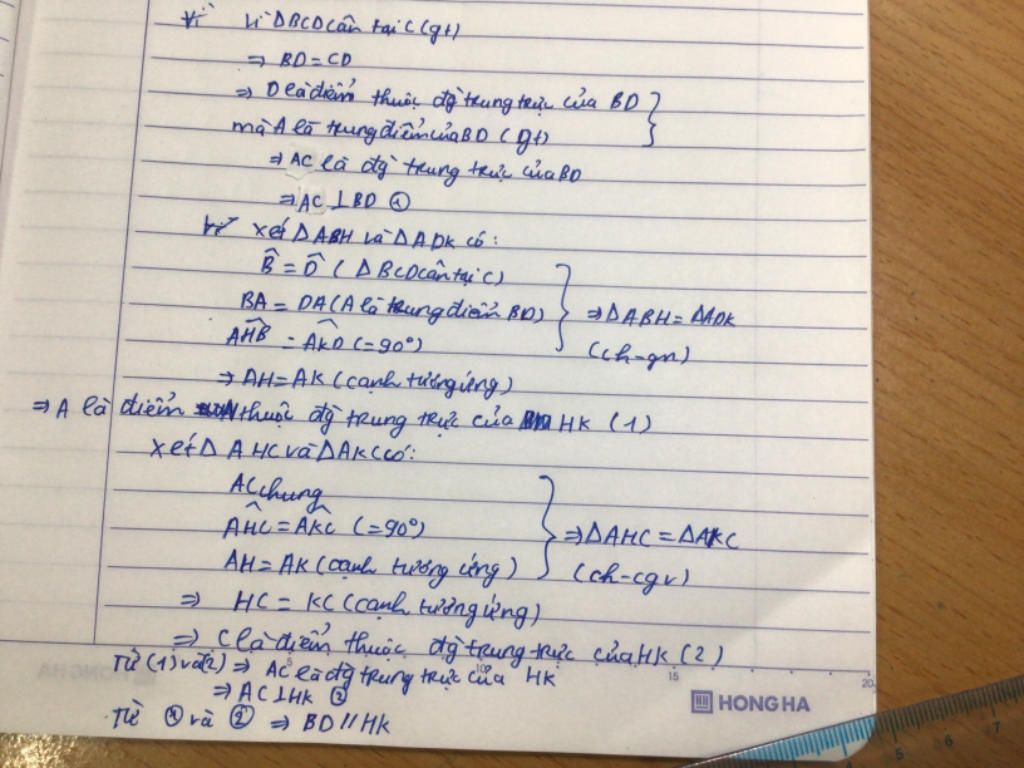 Vì ΔBCD cân tại C (gt)
⇒ BD = CD
⇒ D là điểm thuộc đg trung trực của BD
mà A là trung điểm của BD (gt)
⇒ AC là đg trung trực của BD
⇒ AC ⊥ BD ①
Xét ΔABH và ΔADK có:
B̂ = D̂ (ΔBCD cân tại C)
BA = DA (A là trung điểm BD) ⇒ ΔABH = ΔADK
AĤB = AK̂D (=90°) (ch-gn)
⇒ AH = AK (cạnh tương ứng)
⇒ A là điểm thuộc đg trung trực của HK (1)
Xét Δ AHC và ΔAKC có:
AC chung
AĤC = AK̂C (=90°) ⇒ ΔAHC = ΔAKC
AH = AK (cạnh tương ứng) (ch-cgv)
⇒ HC = KC (cạnh tương ứng)
⇒ C là điểm thuộc đg trung trực của HK (2)
Từ (1) và (2) ⇒ AC là đg trung trực của HK
⇒ AC ⊥ HK ②
Từ ① và ② ⇒ BD // HK
5 10 15 20
HONG HA
4 5 6 7